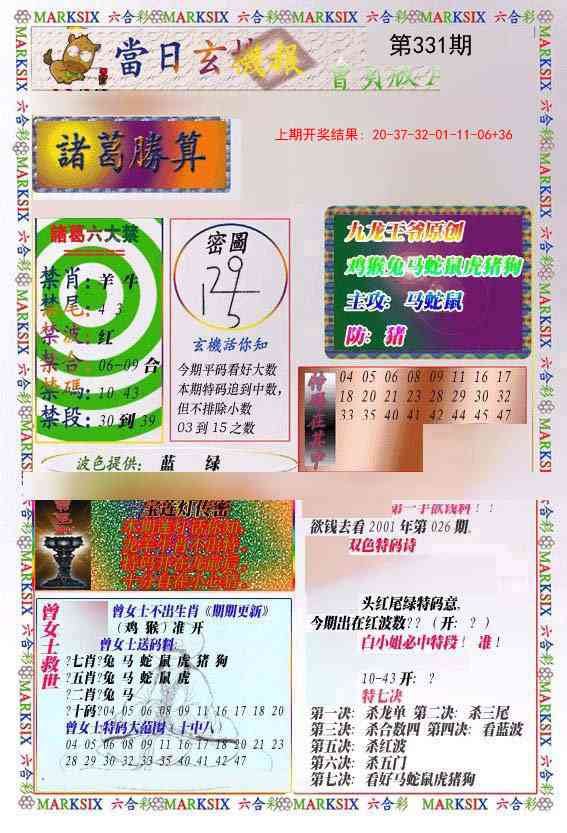 MARKSIX 六合彩 MARKSIX 六合彩 MARKSIX 六合彩 MARKSIX 六合彩
當日玄机機报
第331期
上期开奖结果：20-37-32-01-11-06+36
諸葛勝算
諸葛六大禁
禁肖：羊牛
禁尾：4 3
禁波：红
禁合：06-09合
禁碼：10 43
禁段：30到39
密圖
玄機活你知
今期平码看好大数
本期特码追到中数，
但不排除小数
03到15之数
九龙王爷原创
鸡猴兔马蛇鼠虎猪狗
主攻：马蛇鼠
防：猪
特码在其中
04 05 06 08 09 11 16 17
18 20 21 23 28 29 30 32
33 35 40 41 42 44 45 47
波色提供： 蓝 绿
宝莲灯传密
欲钱去看2001年第026期。
双色特码诗
头红尾绿特码意，
今期出在红波数??（开：？）
白小姐必中特段！ 准！
10-43开：？
特七决
第一决：杀龙单 第二决：杀三尾
第三决：杀合数四 第四决：看蓝波
第五决：杀红波
第六决：杀五门
第七决：看好马蛇鼠虎猪狗
曾女士救世
曾女士不出生肖《期期更新》
（鸡 猴）准开
曾女士送码料:
?七肖?兔 马 蛇 鼠 虎 猪 狗
?五肖?兔 马 蛇 鼠 虎
?二肖?兔 马
?十码?04 05 06 08 09 11 16 17 18 20
曾女士特码大范围（十中八）
04 05 06 08 09 11 16 17 18 20 21 23
28 29 30 32 33 35 40 41 42 47
MARKSIX 六合彩 MARKSIX 六合彩 MARKSIX 六合彩 MARKSIX 六合彩